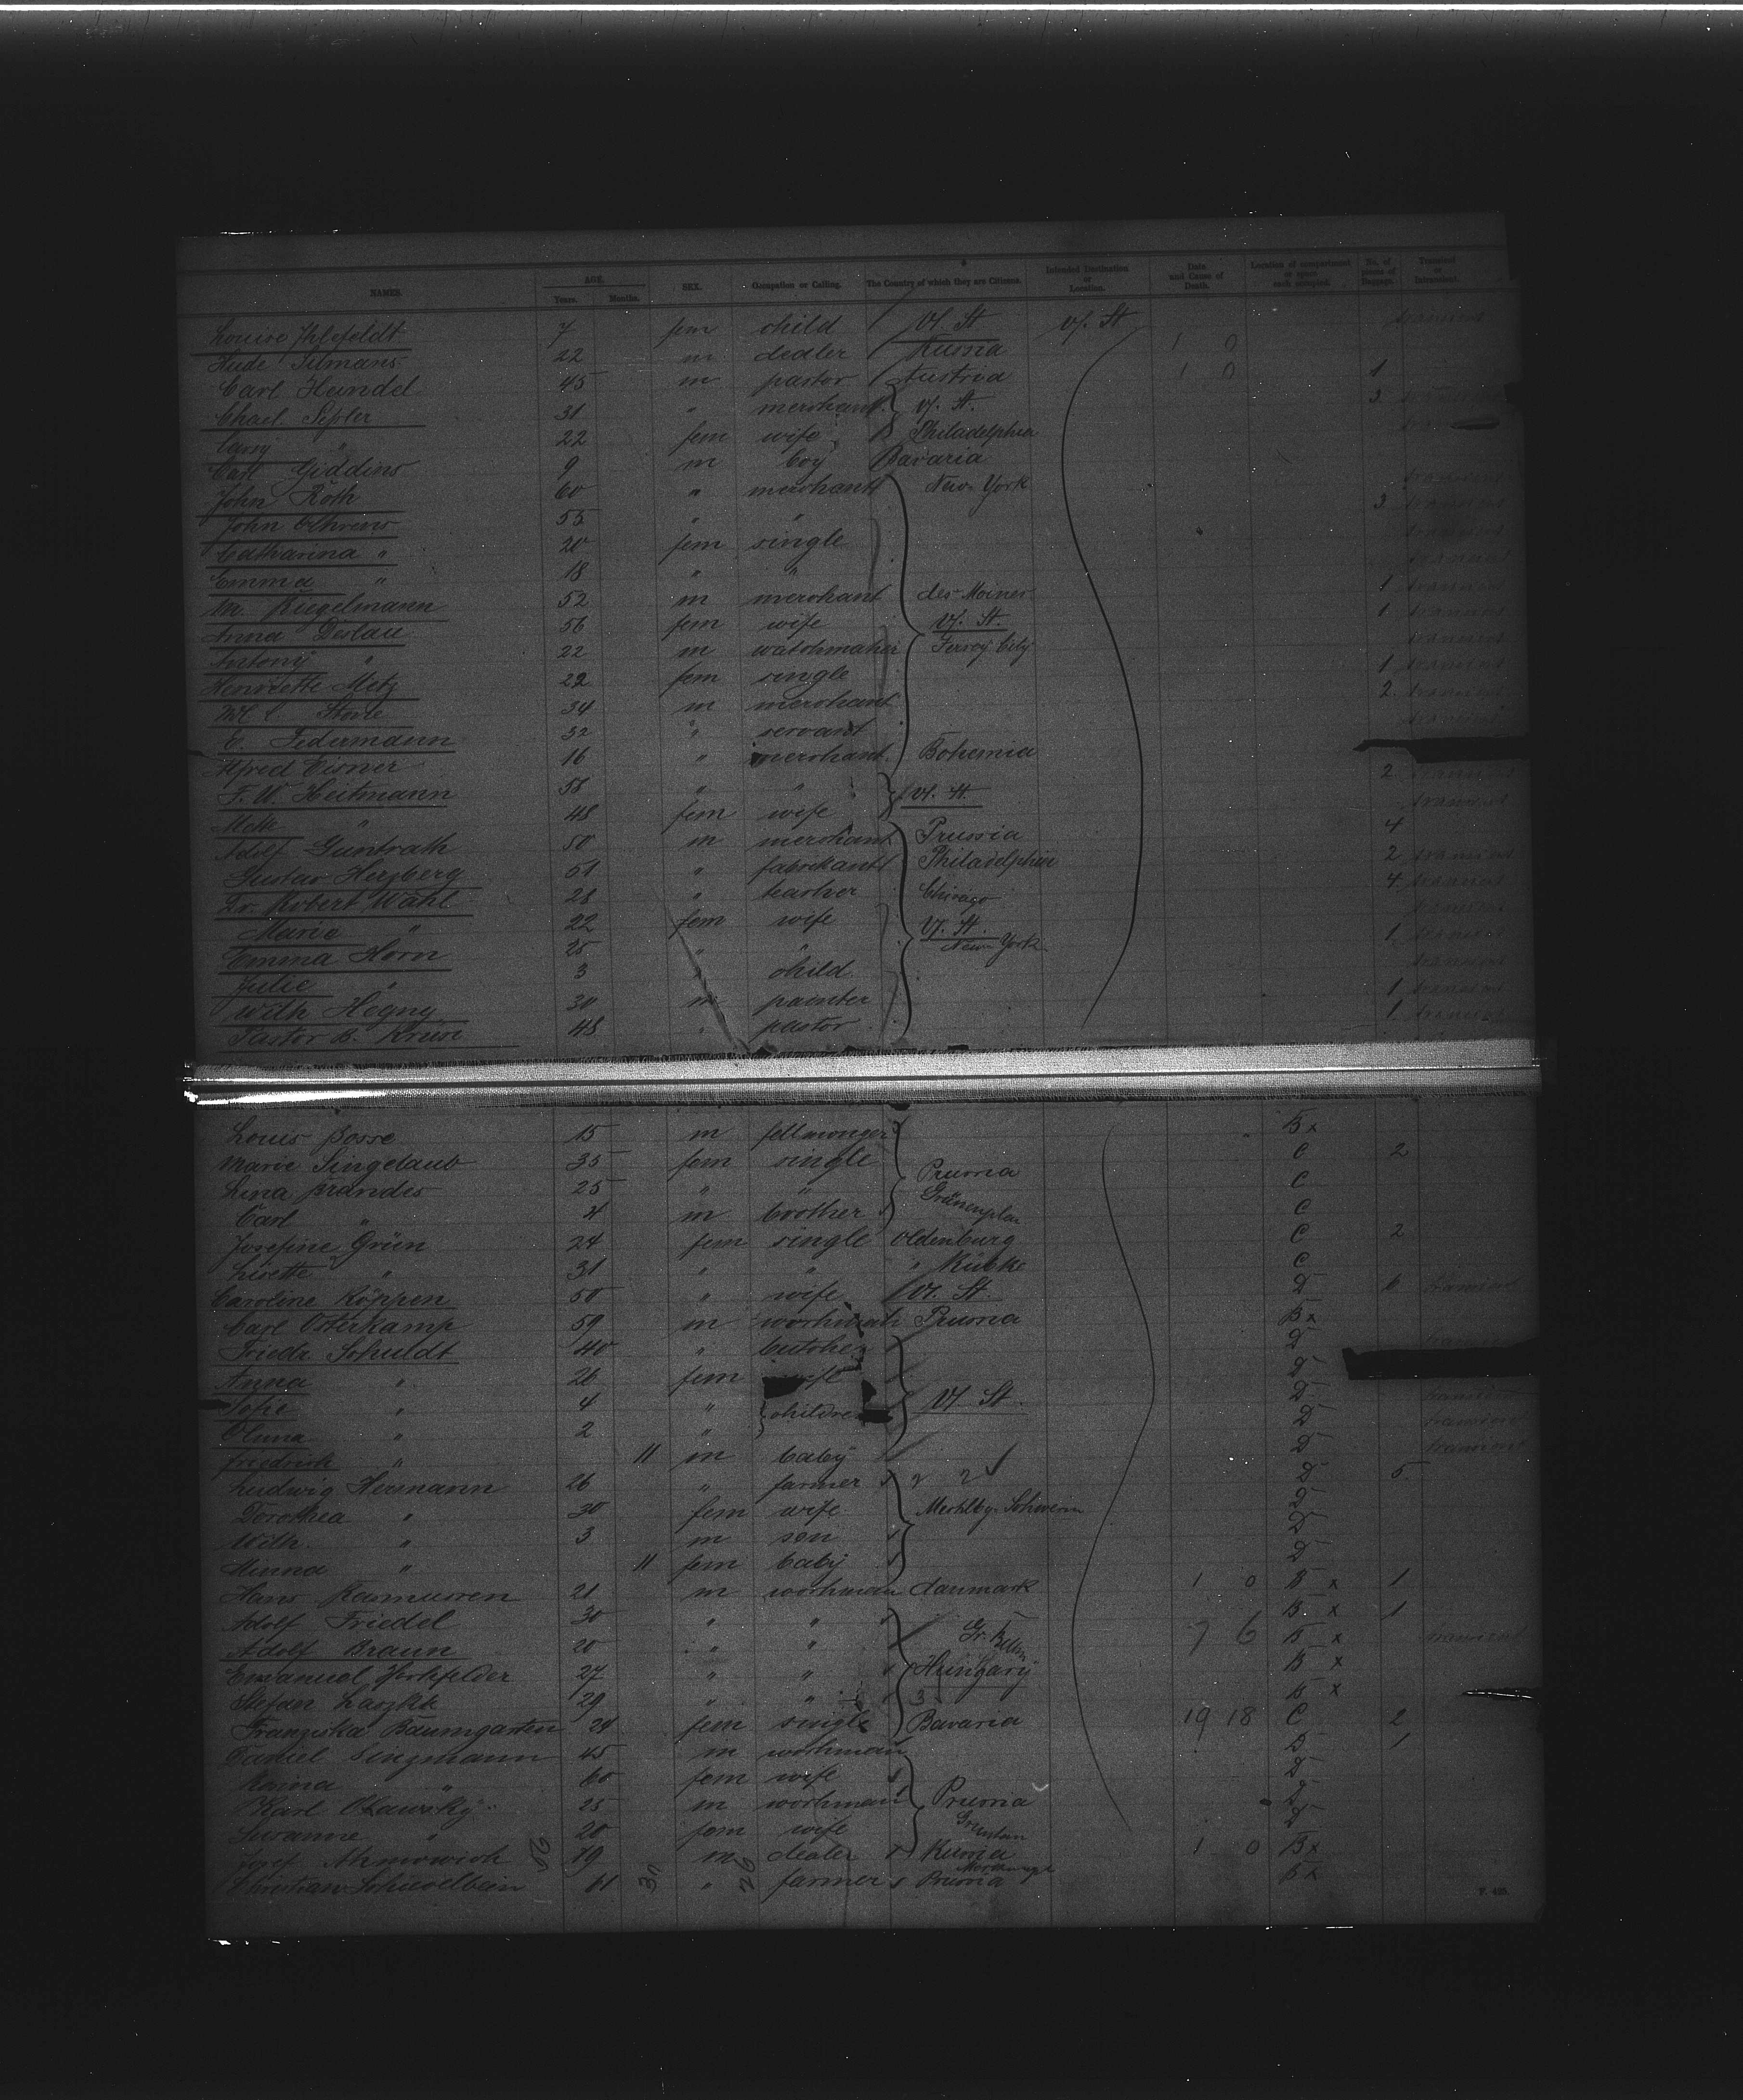 NAMES. AGE. Years. Months. SEX. Occupation or Calling. The Country of which they are Citizens. Intended Destination or Location. Date and Cause of Death. Location of compartment or space each occupied. No. of pieces of Baggage. Transient or Intransient.
Louise Ihlefeldt 7 fem child U. St U. St transient
Hude Tilmans 22 m dealer Russia 1 0
Carl Handel 45 m pastor Austria 1 0 1
31 " merchant U. St. 3
" 22 fem wife Philadelphia
Carl Giddins 9 m boy Bavaria
John Roth 60 " merchant New York transient
John Ahrens 55 " " 3 transient
Catharina " 20 fem single transient
Emma " 18 " " transient
M. Riegelmann 52 m merchant des Moines 1 transient
Anna Deslau 56 fem wife U. St. 1 transient
Antony " 22 m watchmaker Jersey City transient
Henriette Metz 22 fem single 1 transient
34 m merchant 2 transient
E. Federmann 32 " servant transient
Alfred Eisner 16 " merchant Bohemia
F. W. Heitmann 58 " " U. St. 2 transient
" 48 fem wife transient
Adolf Guntrath 50 m merchant Prussia 4
Gustav Herzberg 51 " fabrikant Philadelphia 2 transient
Dr. Robert Wahl 28 " teacher Chicago 4 transient
Marie " 22 fem wife U. St. transient
Emma Horn 25 " " New York 1 transient
Julie " 3 " child transient
Wilh Hegny 30 m painter 1 transient
Pastor B. Kruse 48 " pastor 1 transient
Louis Bosse 15 m fellmonger B x
Marie Singelaub 35 fem single Prussia C 2
Lina Brandes 25 " " Grünenplan C
Carl " 4 m brother C
Josefine Grün 24 fem single Oldenburg C 2
Lisette " 31 " " " C
Caroline Köppen 50 " wife U. St. D 6 transient
Carl Osterkamp 59 m workman Prussia B x
Friedr. Schuldt 40 " butcher D
Anna " 26 fem wife D
Sofie " 4 " children U. St. D transient
" 2 " D transient
Friedrich " 11 m baby D transient
Ludwig Hermann 26 " farmer 2 2 D 5
Dorothea " 30 fem wife Mecklbg. Schwerin D
Wilh. " 3 m son D
Minna " 11 fem baby D
Hans Rasmussen 21 m workman danmark 1 0 B x 1
Adolf Friedel 30 " " B x 1
Adolf Braun 20 " " 7 6 B x transient
Emanuel 27 " " Hungary B x
29 " " 3 B x
Franziska Baumgarten 24 fem single Bavaria 19 18 C 2
Daniel Singmann 45 m workman D 1
" 60 fem wife D
Karl 25 m workman Prussia D
Susanne " 20 fem wife D
Josef 19 m dealer Russia 1 0 B x
Christian Schievelbein 61 " farmer Prussia B x
56 30 26